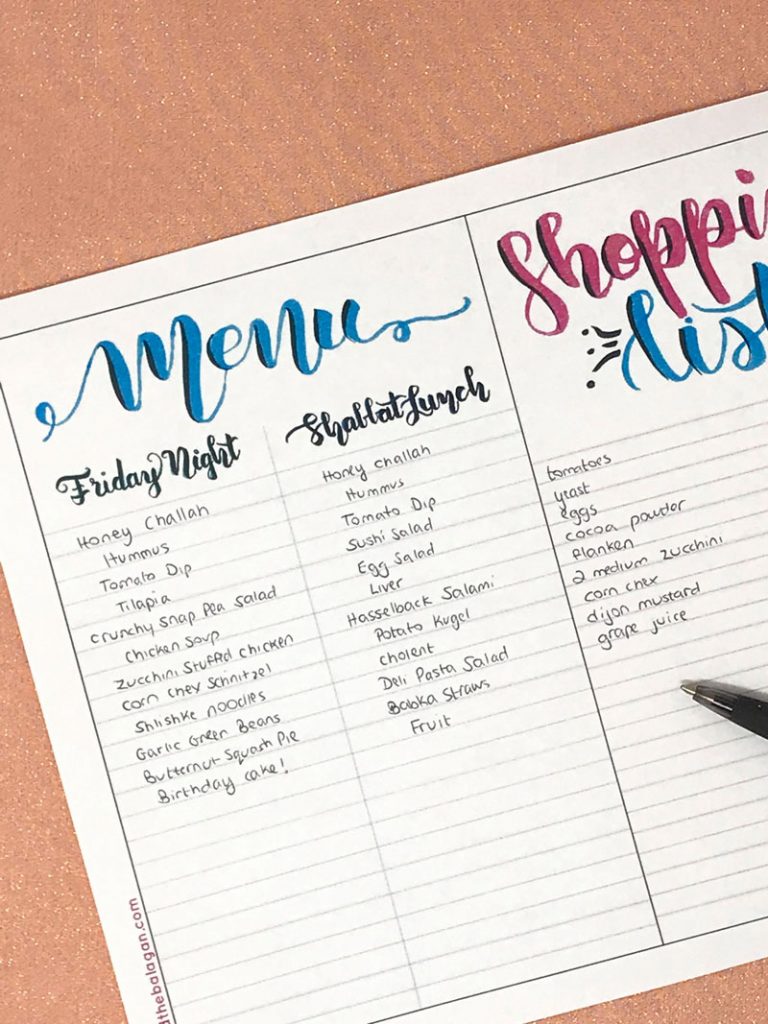 Menu
Friday Night
Honey Challah
Hummus
Tomato Dip
Tilapia
crunchy snap pea salad
Chicken Soup
Zucchini Stuffed chicken
corn chex schnitzel
Shlishke noodles
Garlic Green Beans
Butternut Squash Pie
Birthday cake!
Shabbat Lunch
Honey challah
Hummus
Tomato Dip
Sushi Salad
Egg Salad
Liver
Hasselback Salami
Potato Kugel
cholent
Deli Pasta Salad
Babka Straws
Fruit
Shoppi
List
tomatoes
yeast
eggs
cocoa powder
flanken
2 medium zucchini
corn chex
dijon mustard
grape juice
dthebalagan.com